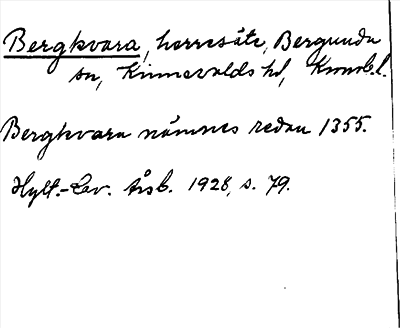 Bergkvara, herresäte, Bergunda
sn, Kinnevalds hd, Kronob.l.
Bergkvara nämnes redan 1355.
Hylt.-Cav. årsb. 1928, s. 79.